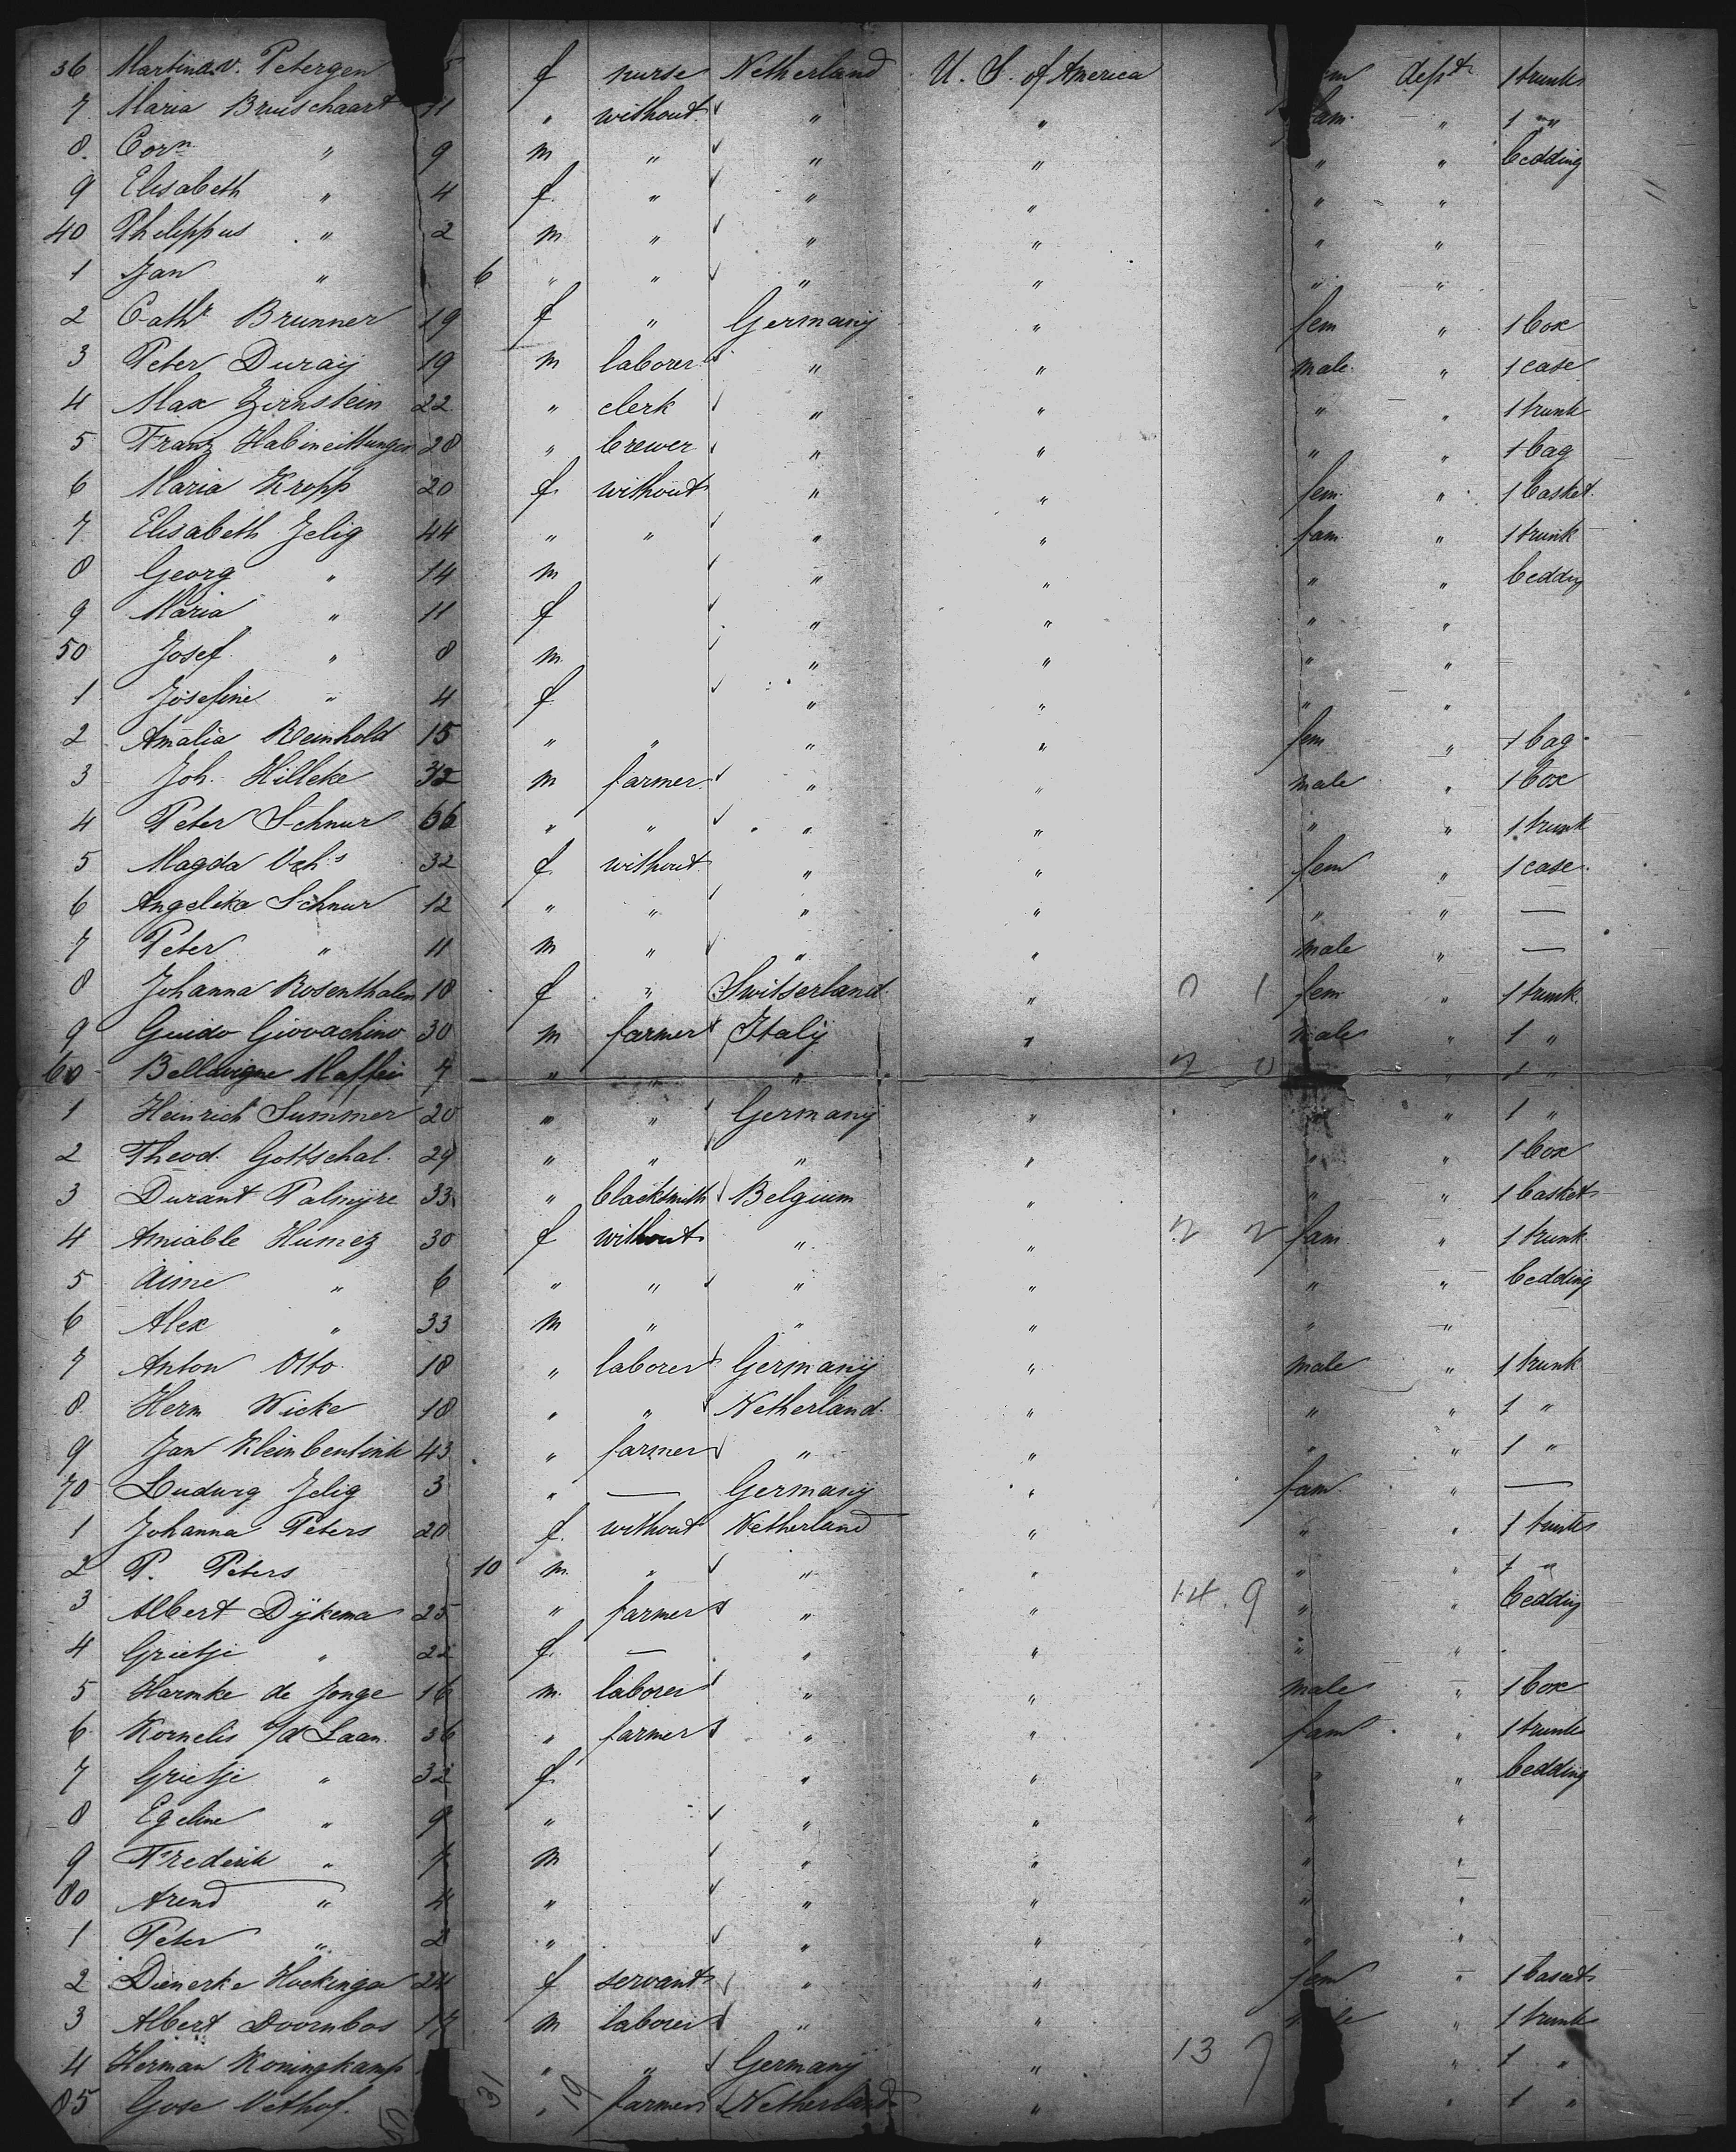 36 Martina v. Petergen 5 f nurse Netherland U. S. of America fem dept 1 trunk
7 Maria Bruischaart 11 " without " " fam. " 1 "
8. Corn " 9 m " " " " " bedding
9 Elisabeth " 4 f " " " " "
40 Philippus " 2 m " " " " "
1 Jan " 6 " " " " " "
2 Cathr Brunner 19 f " Germany " fem " 1 box
3 Peter Duray 19 m laborer " " male " 1 case
4 Max Zirnstein 22 " clerk " " " " 1 trunk
5 Franz 28 " brewer " " " " 1 bag
6 Maria Kropp 20 f without " " fem " 1 basket
7 Elisabeth Jelig 44 " " " " fam " 1 trunk
8 Georg " 14 m " " " " bedding
9 Maria " 11 f " " " "
50 Josef " 8 m " " " "
1 Josefine " 4 f " " " "
2 Amalia Reinhold 15 " " " " fem " 1 bag
3 Joh. Hilleke 32 m farmer " " male " 1 box
4 Peter Schnur 66 " " " " " " 1 trunk
5 Magda 32 f without " " fem " 1 case
6 Angelika Schnur 12 " " " " " " —
7 Peter " 11 m " " " male " —
8 Johanna Rosenthalen 18 f " Switserland " 1 fem " 1 trunk
9 Guido Giovachino 30 m farmer Italy " male " 1 "
60 Maffei " " " " " 1 "
1 Heinrich Summer 20 " " Germany " " " 1 "
2 Theod. Gottschal. 29 " " " " " " 1 box
3 Durant Palmyre 33 " blacksmith Belgium " " " 1 basket
4 Amiable Humez 30 f without " " 2 2 fam " 1 trunk
5 Aime " 6 " " " " " " bedding
6 Alex " 33 m " " " " "
7 Anton Otto 18 " laborer Germany " male " 1 trunk
8 Herm Wicke 18 " " Netherland " " " 1 "
9 Jan Kleinbentink 43 " farmer " " " " 1 "
70 Ludwig Jelig 3 " — Germany " fam " —
1 Johanna Peters 28 f. without Netherland " " " 1 trunk
2 P. Peters 10 m " " " " " 1 "
3 Albert Dijkema 25 " farmer " " 14 9 " " bedding
4 Grietje " 22 f — " " " "
5 Harmke de Jonge 16 m laborer " " male " 1 box
6 Kornelis v/d Laan 36 " farmer " " fam " 1 trunk
7 Grietje " 32 f " " " " bedding
8 Egeline " 9 " " " " "
9 Frederik " 7 m " " " "
80 Arend " 4 " " " " "
1 Peter " 2 " " " " "
2 Dienerke Huckinga 24 f servant " " fem " 1
3 Albert Doornbos 17 m laborer " " " 1 trunk
4 Herman Koningkamp " " Germany " 13 7 " 1 "
85 Gose Vethof. 50 31 " 19 farmer Netherland " " 1 "